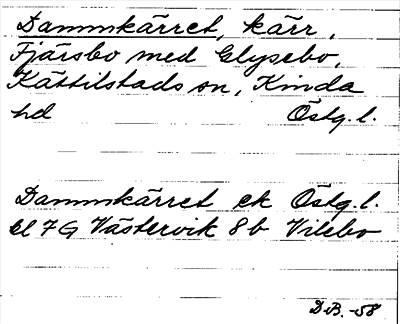 Dammkärret, kärr,
Fjärsbo med Elysebo,
Kättilstads sn, Kinda
hd Östg. l.
Dammkärret ek Östg. l.
bl 7G Västervik 8b Vilsbo
D.B. -58